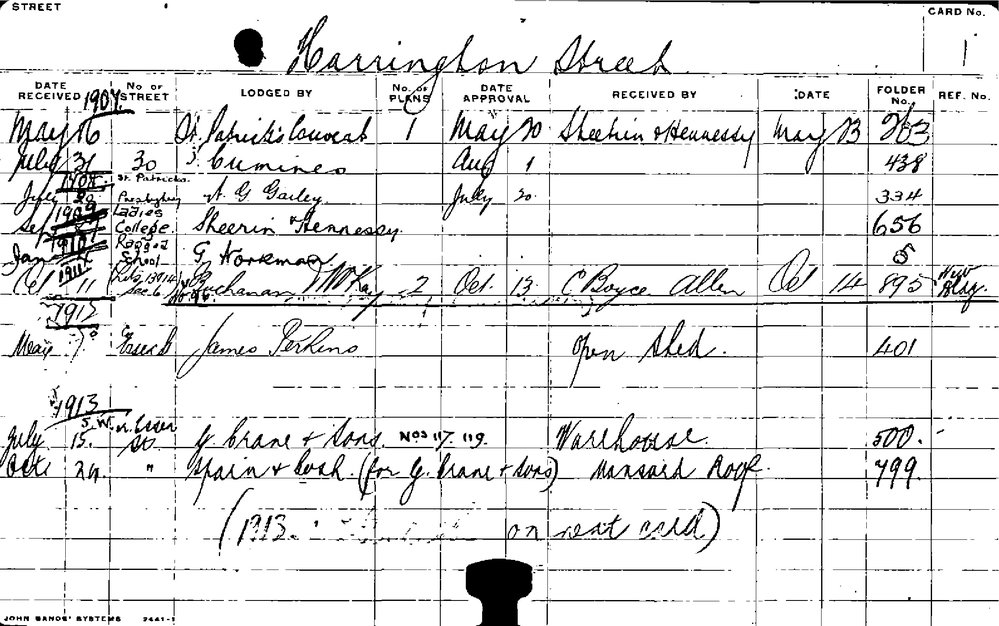 STREET
CARD No.
Harrington Street
1
DATE RECEIVED No OF STREET LODGED BY No. OF PLANS DATE APPROVAL RECEIVED BY DATE FOLDER No. REF. No.
1907
May 16 St. Patrick's Convent 1 May 20 Sheerin & Hennessy May 23 263
July 31 30 J. Cumines Aug 1 438
1908 St. Patricks
July 20 Presbytery A. G. Gailey July 20 334
1909 Ladies
Sep College Sheerin & Hennessy 656
1910 Ragged
Jan School G Workman 5
1911
Oct 11 Buchanan McKay 2 Oct. 13 C Boyce Allen Oct 14 895 New Bldg.
1912
May 7 Essex James Perkins Open Shed. 401
1913
S. W. n. Essex
July 15. St. G. Crane & Sons. Nos 117. 119. Warehouse. 500.
Oct. 29 " Spain & Cosh (for G. Crane & Sons) Mansard Roof 799.
(1913. on next card)
JOHN SANDS' SYSTEMS 2441-1